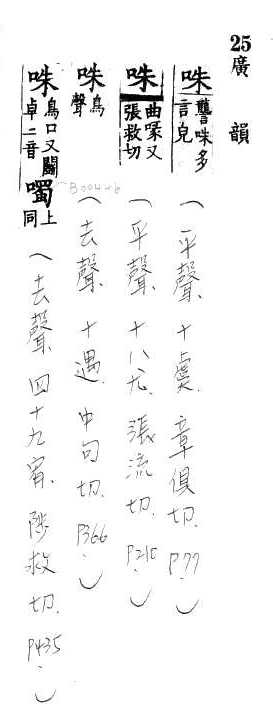 25廣韻
咮 讘咮多言皃
(平聲.十虞.章俱切.P.77.)
咮 曲喙又張救切
(平聲.十八尤.張流切.P.210.)
咮 鳥聲
B004-6
(去聲.十遇.中句切.P366.)
咮 鳥口又鬭卓二音 噣 上同
(去聲.四十九宥.陟救切.P435.)